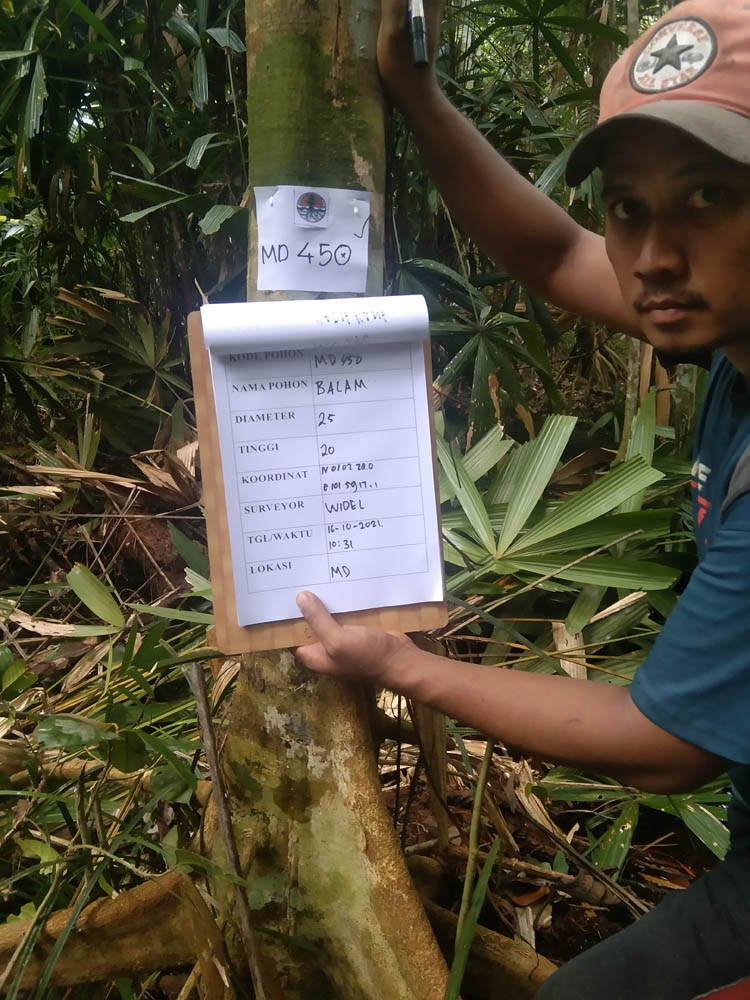 CONVERSE
ALL STAR
MD 450
KODE POHON MD 450
NAMA POHON BALAM
DIAMETER 25
TINGGI 20
KOORDINAT N 01 02 28.0
E 101 59 17.1
SURVEYOR WIDEL
TGL/WAKTU 16-10-2021.
10:31
LOKASI MD